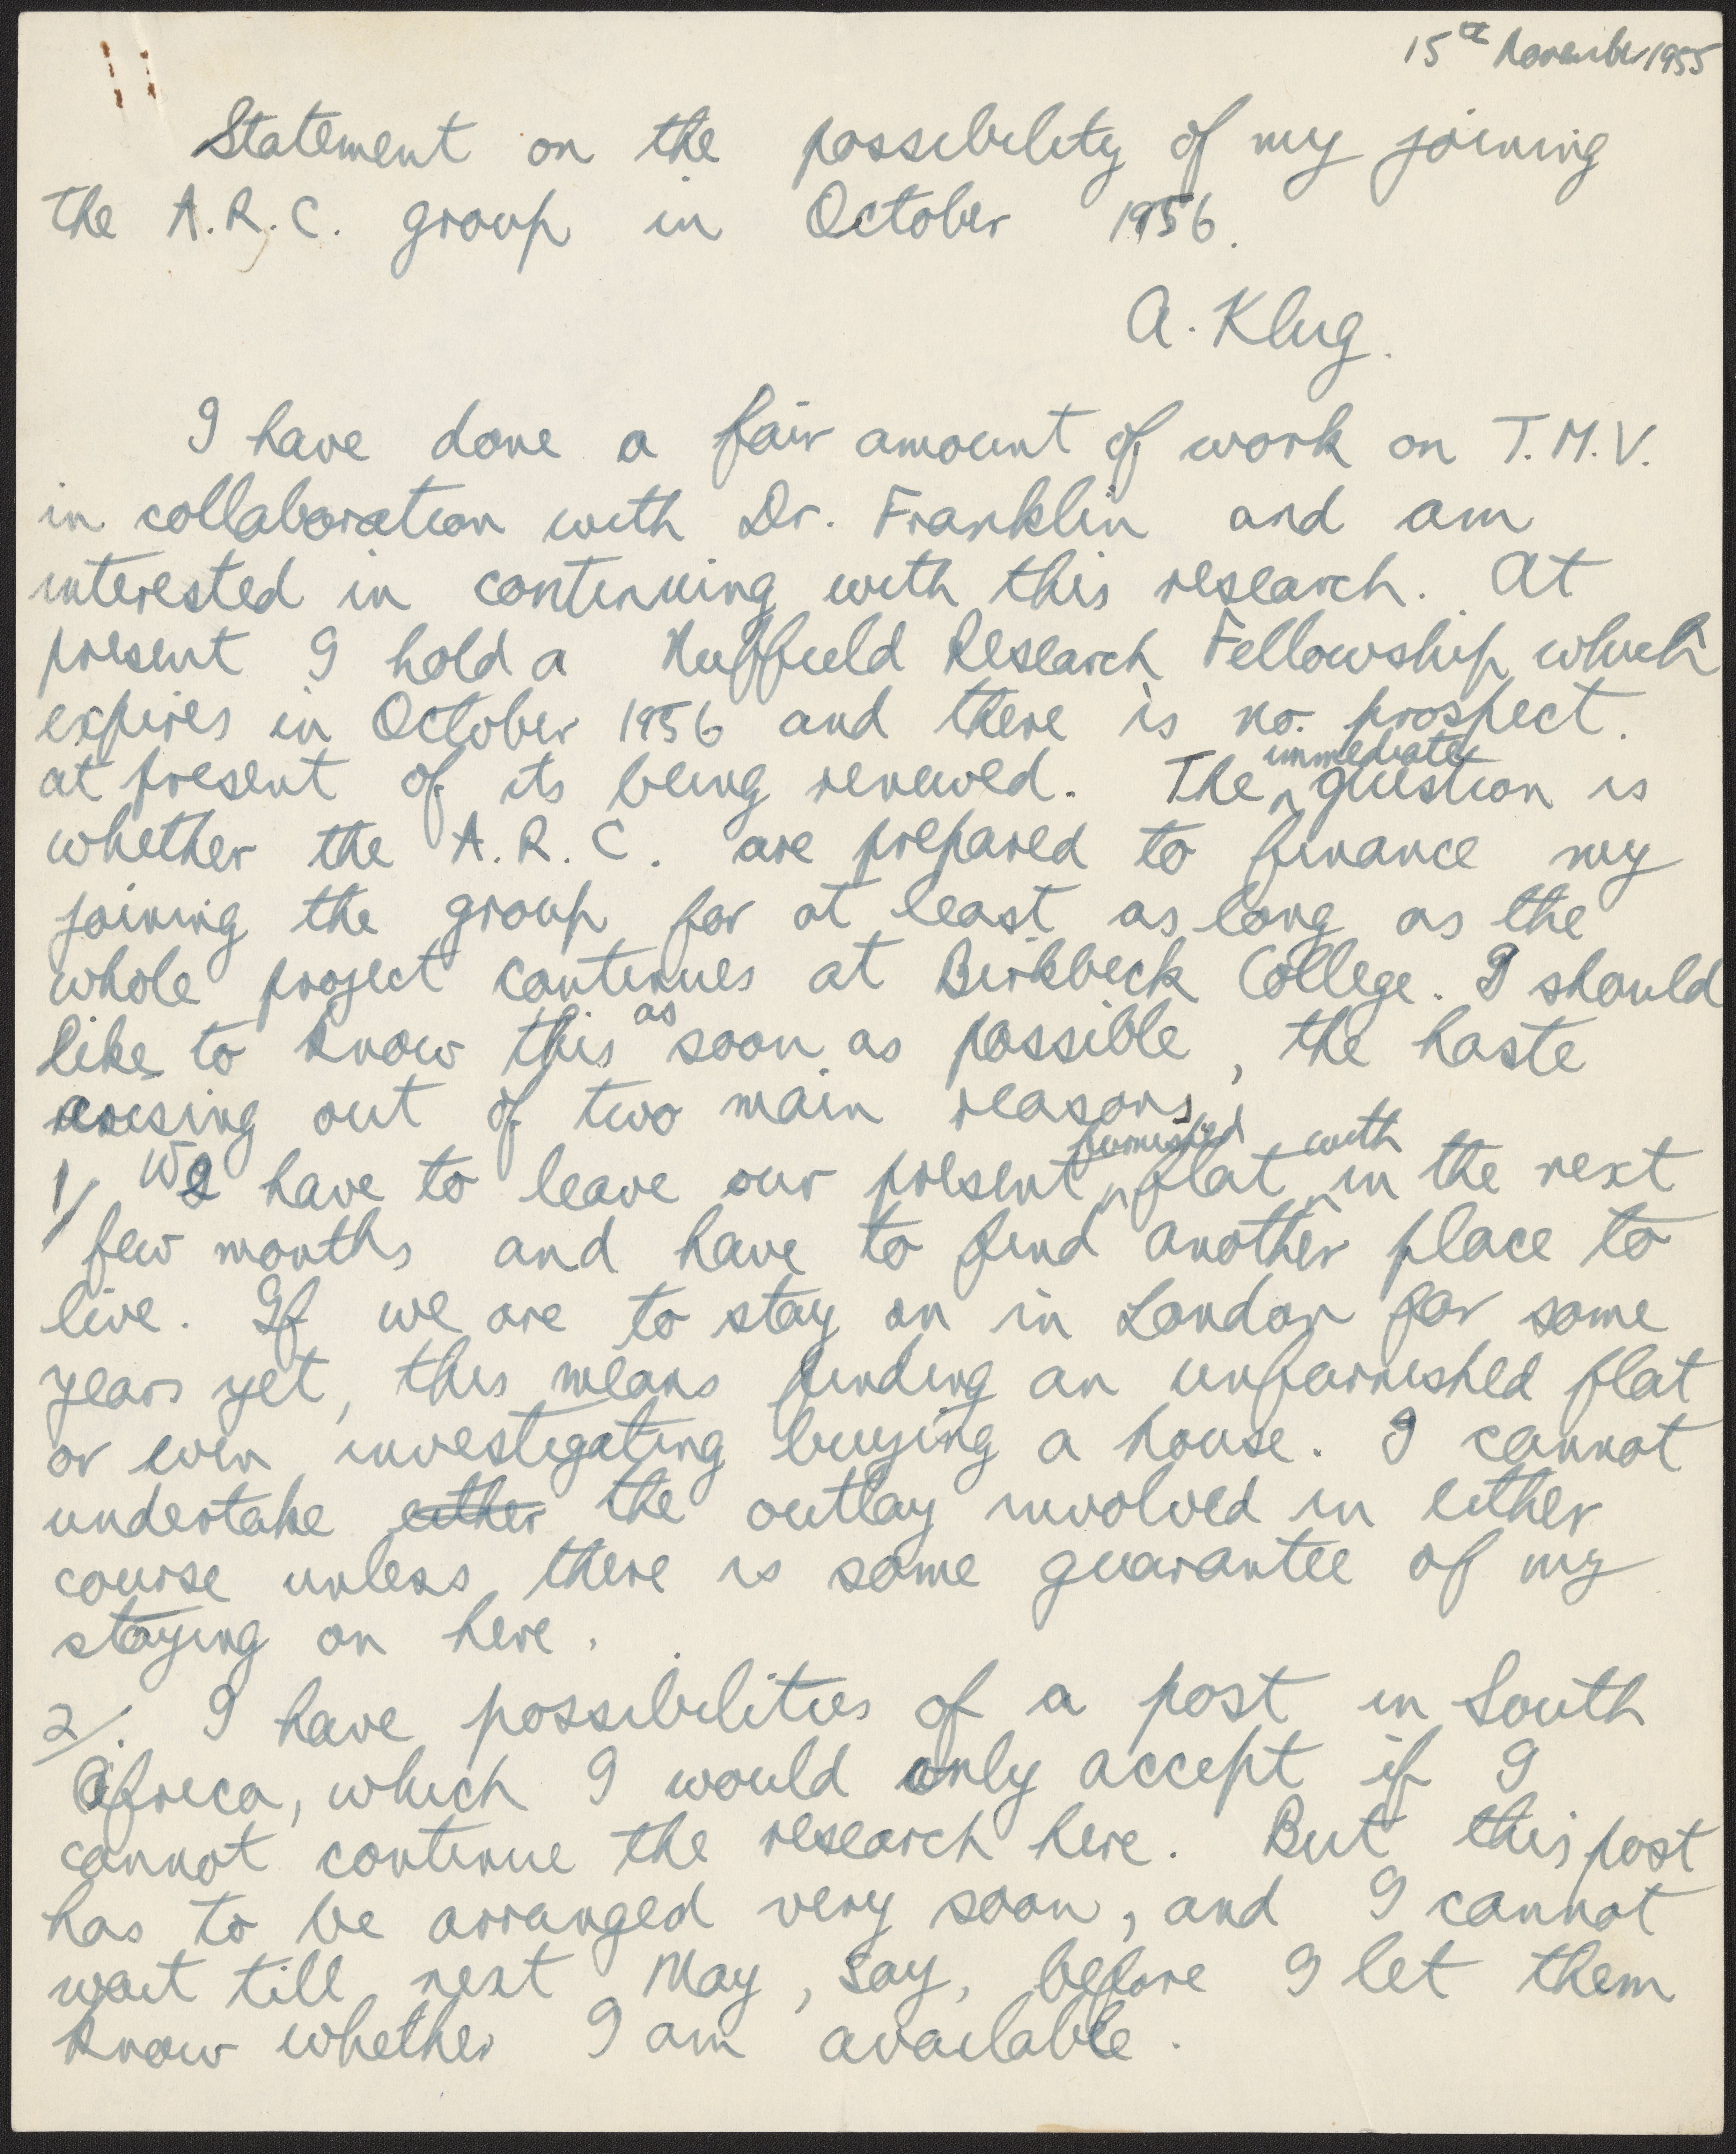 15th November 1955
Statement on the possibility of my joining
the A.R.C. group in October 1956.
A. Klug.
I have done a fair amount of work on T.M.V.
in collaboration with Dr. Franklin and am
interested in continuing with this research. At
present I hold a Nuffield Research Fellowship which
expires in October 1956 and there is no prospect
at present of its being renewed. The immediate question is
whether the A.R.C. are prepared to finance my
joining the group for at least as long as the
whole project continues at Birkbeck College. I should
like to know this as soon as possible, the haste
arising out of two main reasons.
1/ We have to leave our present furnished flat within the next
few months and have to find another place to
live. If we are to stay on in London for some
years yet, this means finding an unfurnished flat
or even investigating buying a house. I cannot
undertake either the outlay involved in either
course unless there is some guarantee of my
staying on here.
2/. I have possibilities of a post in South
Africa, which I would only accept if I
cannot continue the research here. But this post
has to be arranged very soon, and I cannot
wait till next May, say, before I let them
know whether I am available.